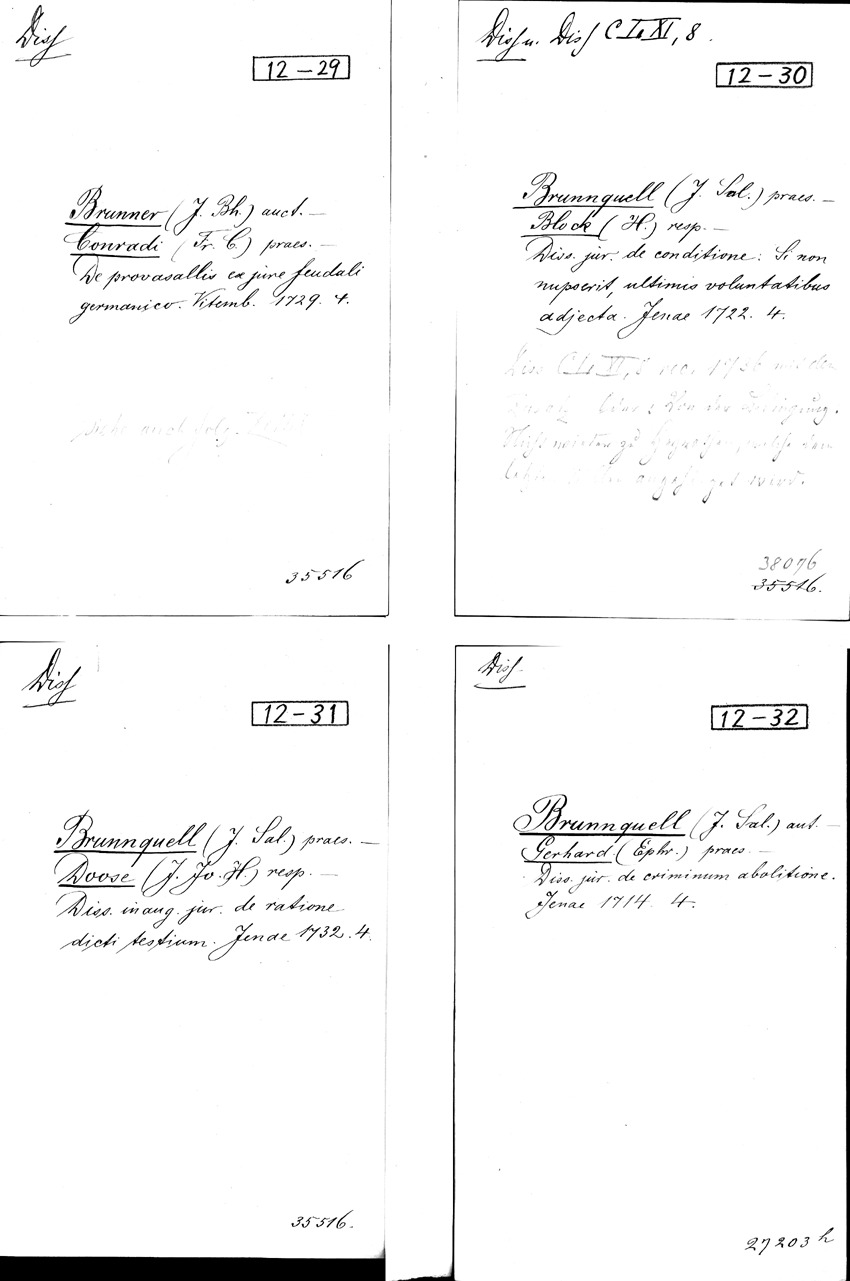 Diss
12-29
Brunner (J. Bh.) auct. —
Conradi (Fr. C.) praes. —
De provasallis ex jure feudali
germanico. Vitemb. 1729. 4.
siehe auch folg. Zettel
35516
Diss u. Diss C Le XI, 8.
12-30
Brunnquell (J. Sal.) praes. —
Block (H.) resp. —
Diss. jur. de conditione: Si non
nupserit, ultimis voluntatibus
adjecta. Jenae 1722. 4.
Diss C Le XI, 8 rec. 1736 mit dem
über: Von der Bedingung.
Nicht wieder zu
angehänget wird.
38076
35516.
Diss
12-31
Brunnquell (J. Sal.) praes. —
Doose (J. Jo. H.) resp. —
Diss. inaug. jur. de ratione
dicti testium. Jenae 1732. 4.
35516.
Diss
12-32
Brunnquell (J. Sal.) aut. —
Gerhard (Ephr.) praes. —
Diss. jur. de criminum abolitione.
Jenae 1714. 4.
27203 h